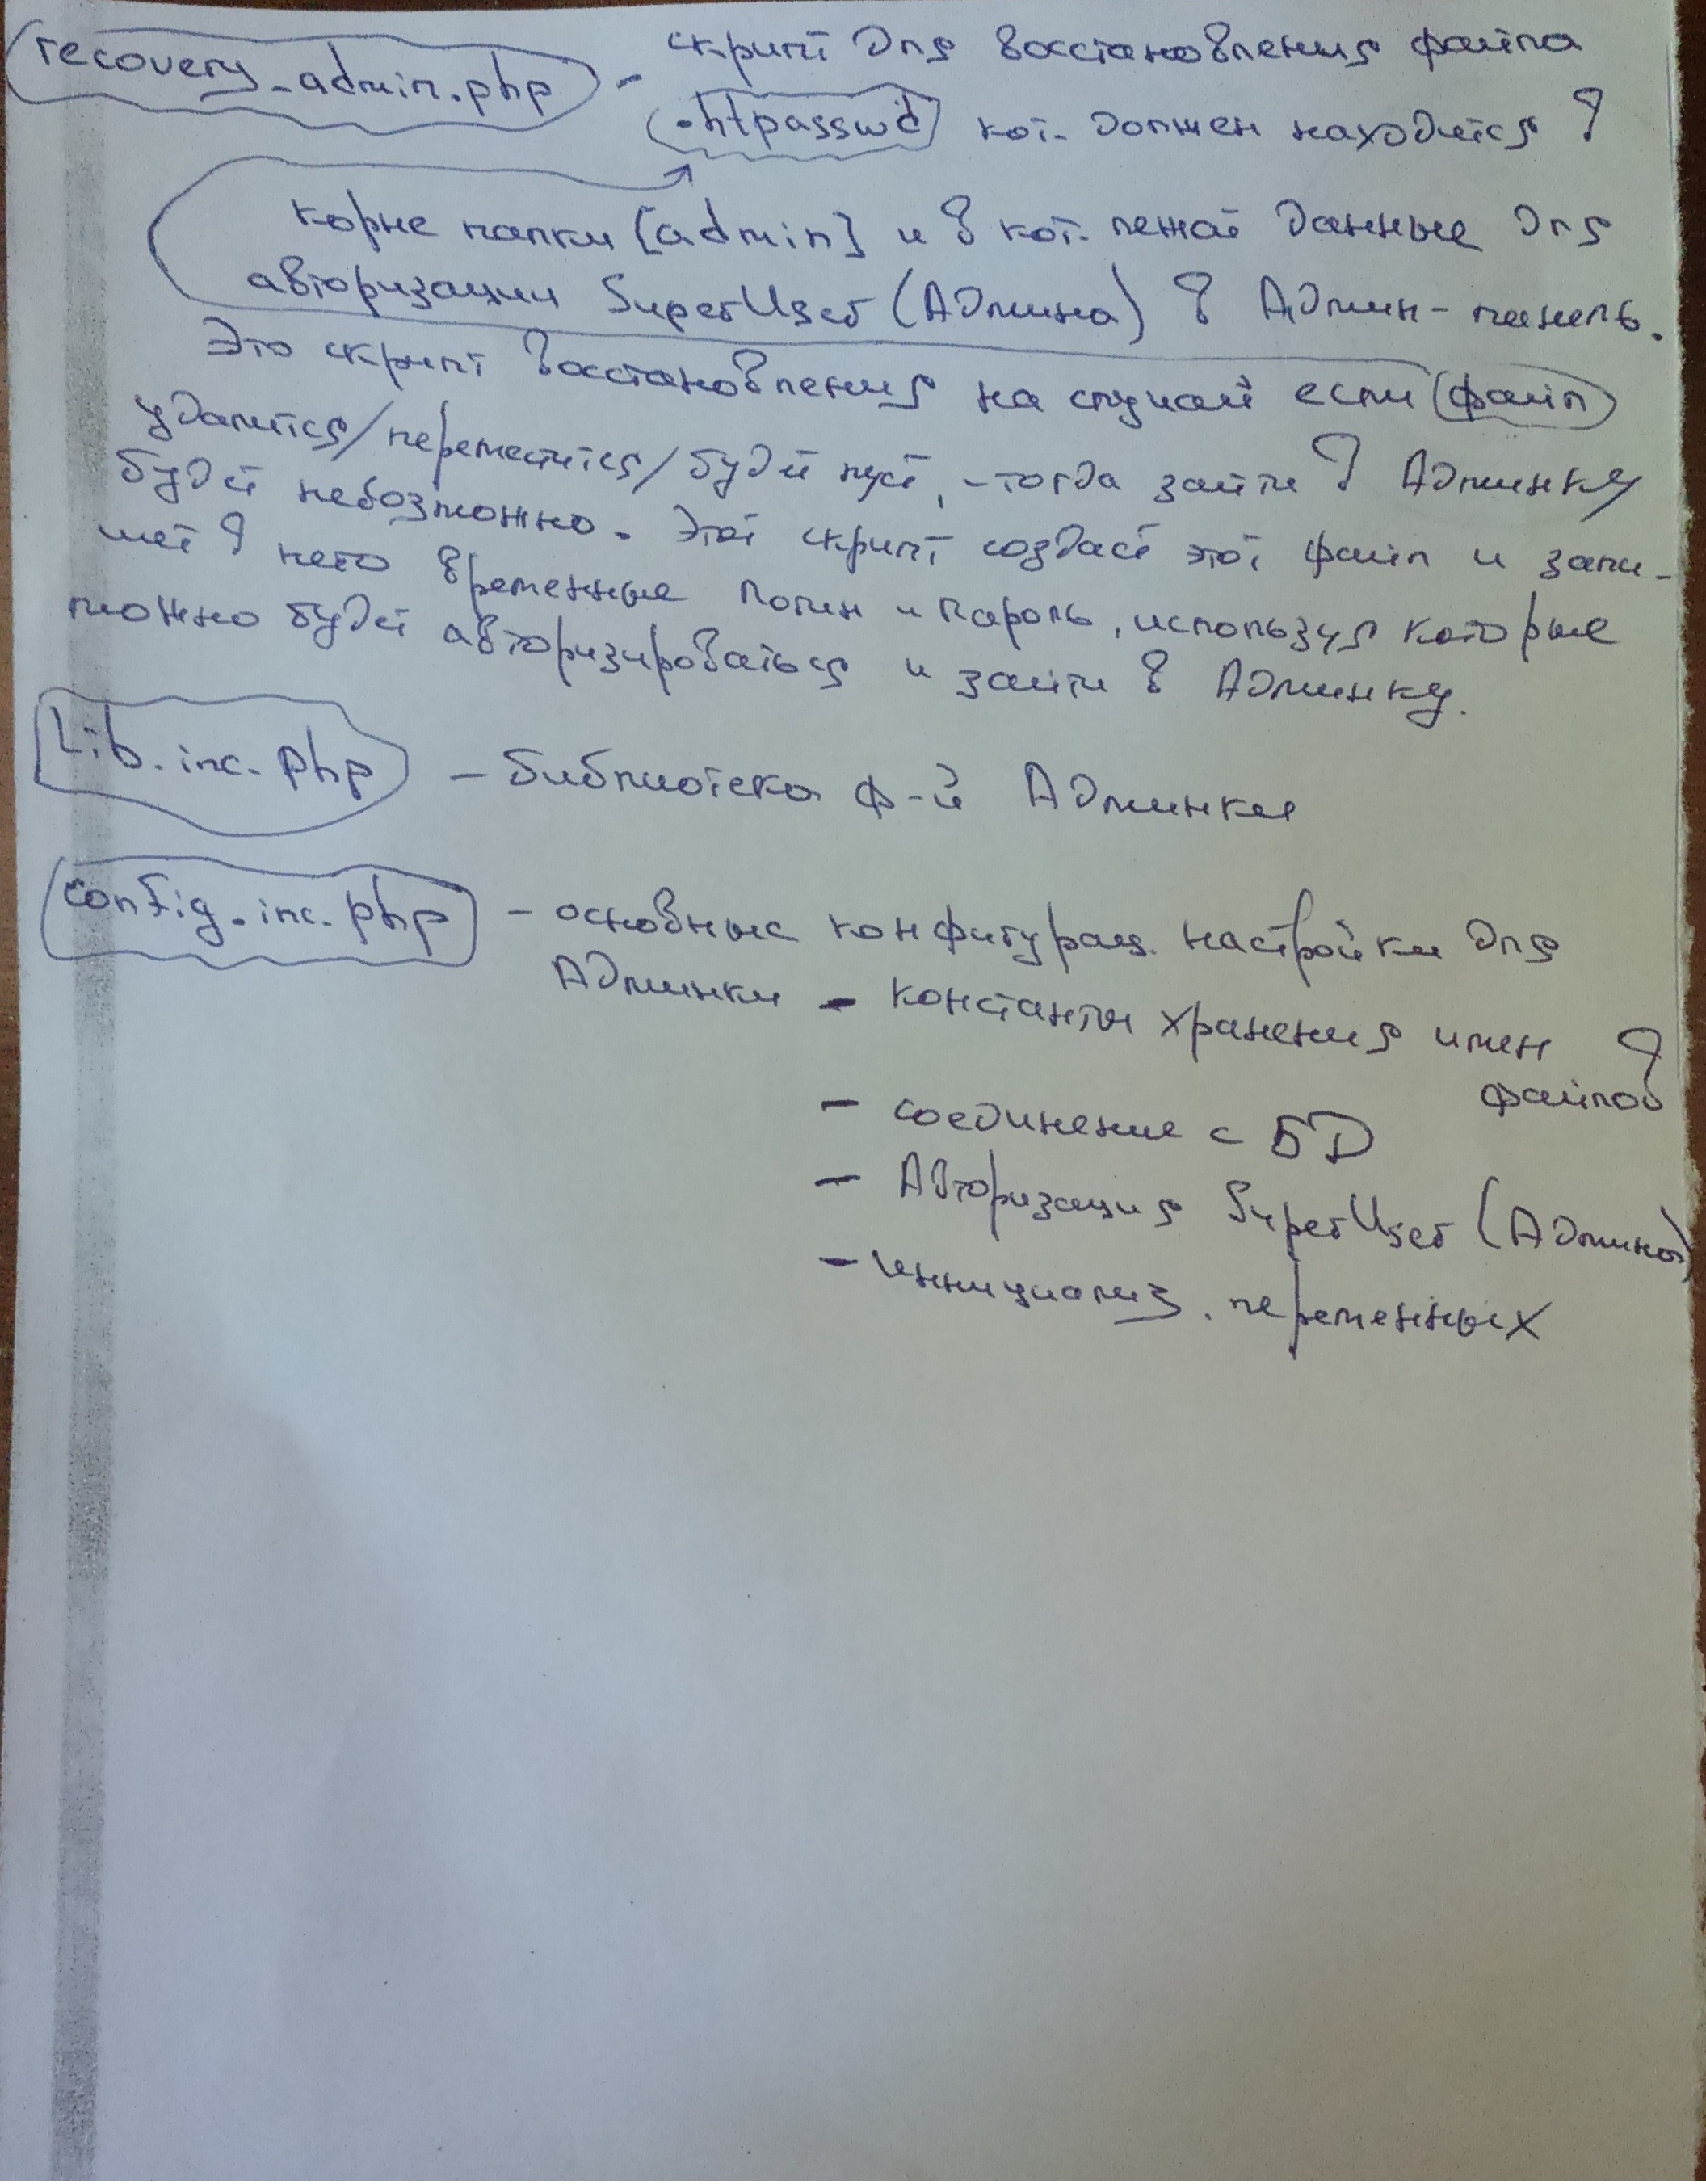 recovery_admin.php - скрипт для восстановления файла
.htpasswd кот. должен находится в
корне папки [admin] и в кот. лежат данные для
авторизации SuperUser (Админа) в Админ-панель.
Это скрипт восстановления на случай если файл
удалится/переместится/будет пуст, - тогда зайти в Админку
будет невозможно. Этот скрипт создаст этот файл и запи-
шет в него временные логин и пароль, используя которые
можно будет авторизироваться и зайти в Админку.
Lib.inc.php - библиотека ф-й Админки
config.inc.php - основные конфигурац. настройки для
Админки - константы хранения имен в
файлов
- соединение с БД
- Авторизация SuperUser (Админа)
- Иннициализ. переменных